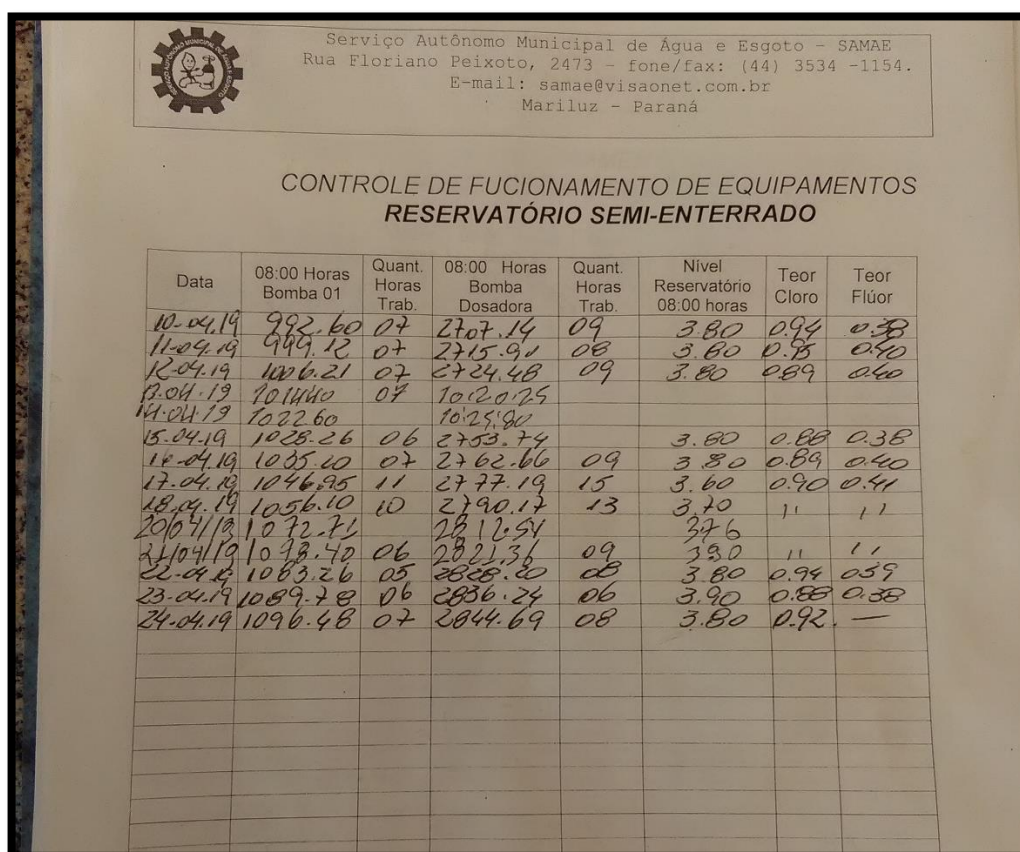 Serviço Autônomo Municipal de Água e Esgoto - SAMAE
Rua Floriano Peixoto, 2473 - fone/fax: (44) 3534 -1154.
E-mail: samae@visaonet.com.br
Mariluz - Paraná
CONTROLE DE FUCIONAMENTO DE EQUIPAMENTOS
RESERVATÓRIO SEMI-ENTERRADO
Data 08:00 Horas Bomba 01 Quant. Horas Trab. 08:00 Horas Bomba Dosadora Quant. Horas Trab. Nível Reservatório 08:00 horas Teor Cloro Teor Flúor
10-04.19 992.60 07 2707.14 09 3.80 0.94 0.38
11-04.19 999.12 07 2715.90 08 3.80 0.95 0.40
12-04.19 1006.21 07 2724.48 09 3.80 0.89 0.40
13.04.19 101440 07
14.04.19 1022.60
15.04.19 1028.26 06 2753.74 3.80 0.88 0.38
16-04.19 1035.20 07 2762.66 09 3.80 0.89 0.40
17.04.19 1046.95 11 2777.19 15 3.60 0.90 0.41
18.04.19 1056.10 10 2790.17 13 3.70 11 11
20/04/19 1072.71 2812.54 376
21/04/19 1078.40 06 2821.36 09 390 11 11
22-04.19 1083.26 05 2828.20 08 3.80 0.94 039
23-04.19 1089.78 06 2836.24 06 3.90 0.88 0.38
24-04.19 1096.48 07 2844.69 08 3.80 0.92. —